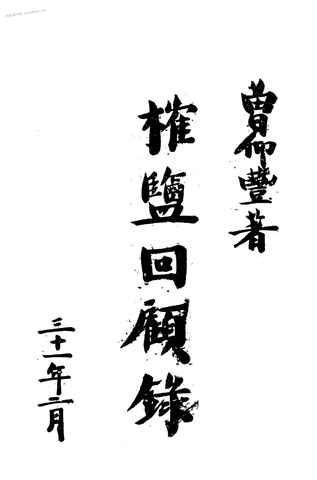 曾仰豐著
榷鹽回顧錄
三十一年二月